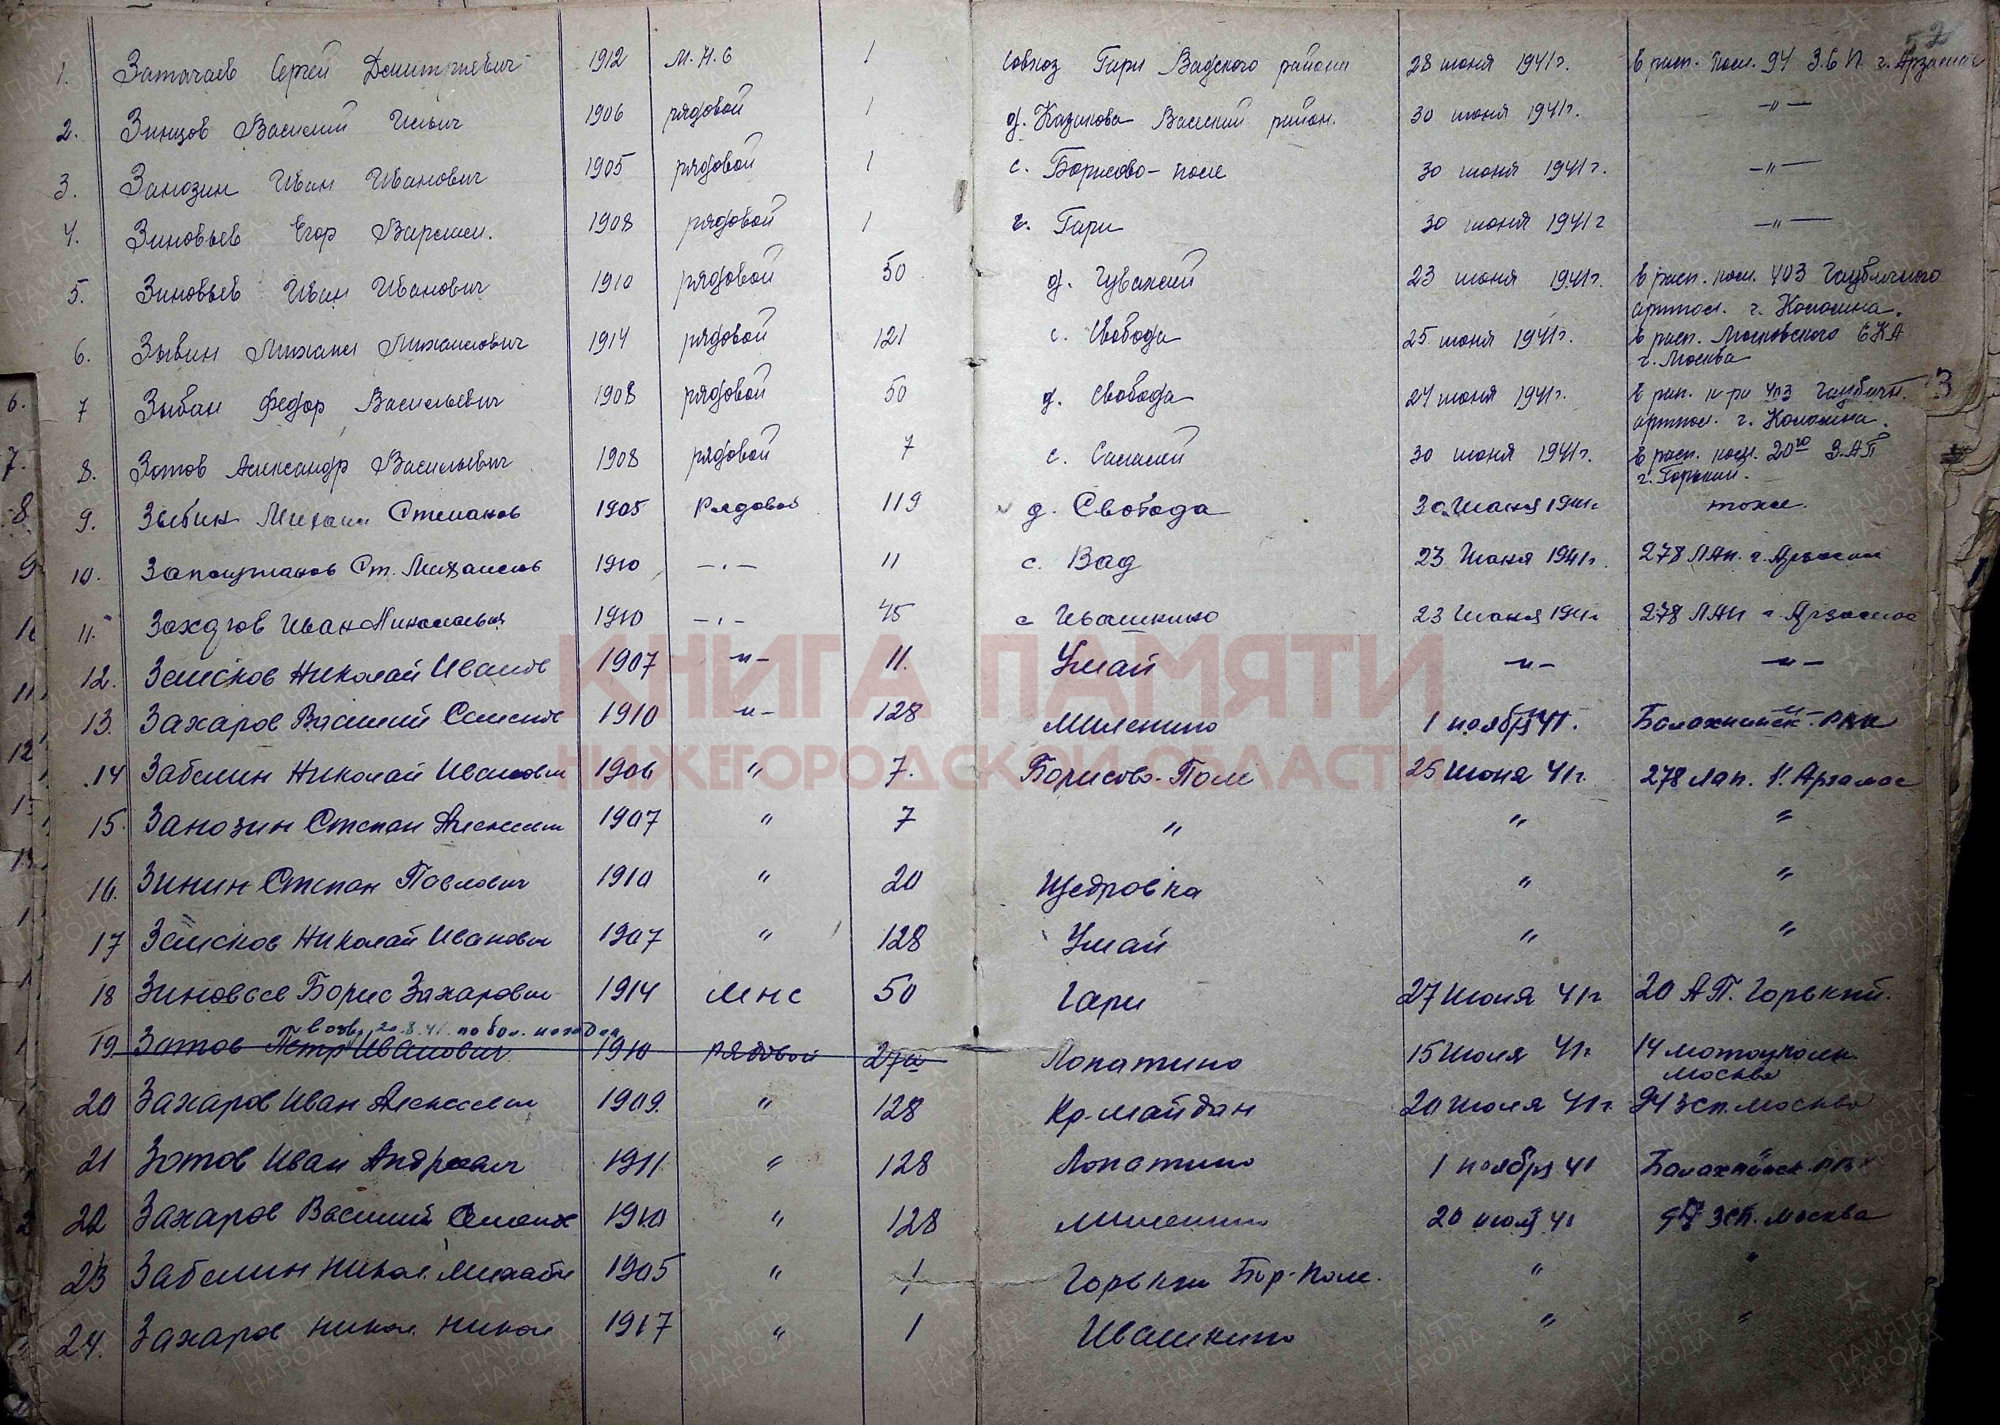 1. Затачаев Сергей Дмитриевич 1912 м.н.с 1 совхоз Гари Вадского района 28 июня 1941г. в расп. пол. 94 З.С.П. г. Арзамас
2. Зинцов Василий Ильич 1906 рядовой 1 д. Казаково Вадский район. 30 июня 1941г. —"—
3. Занозин Иван Иванович 1905 рядовой 1 с. Борисово-поле 30 июня 1941г. —"—
4. Зиновьев Егор 1908 рядовой 1 Гари 30 июня 1941г —"—
5. Зиновьев Иван Иванович 1910 рядовой 50 д. 23 июня 1941г. в расп. 403 Гаубичного
артпол. г. Коломна.
6. Зывин Михаил Михайлович 1914 рядовой 121 с. Свобода 25 июня 1941г. в расп. Московского
г. Москва
7 Зыбин Федор Васильевич 1908 рядовой 50 д. Свобода 24 июня 1941г. в рап. к-ра 403 Гаубичн. 3
артпол. г. Коломна.
8. Зотов Александр Васильевич 1908 рядовой 7 с. 30 июня 1941г. в расп. 20го З.А.П
г. Горький.
9. Зыбин Михаил Степанов 1905 Рядовой 119 д. Свобода 30 Июня 1941г тоже.
10. Ст. Михайлов 1910 —"— 11 с. Вад 23 Июня 1941г. 278 ЛАП. г. Арзамас
11. Иван Николаевич 1910 —"— 45 с Ивашкино 23 Июня 1941г 278 ЛАП г. Арзамас
12. Земсков Николай Иванов 1907 —"— 11. Умай —"— —"—
13. Захаров Василий Семенов 1910 —"— 128 Миленино 1 ноября 41. Балахнинск. РВК
14 Забелин Николай Иванович 1906 " 7. Борисово-Поле 25 Июня 41г. 278 лап. Арзамас
15. Занозин Степан Алексеевич 1907 " 7 " " "
16. Зинин Степан Павлович 1910 " 20 Щедровка " "
17 Земсков Николай Иванович 1907 " 128 Умай " "
18 Зиновьев Борис Захарович 1914 мнс 50 Гари 27 Июня 41г 20 АП. Горький.
20.8.41. по бол.
19 Зотов Петр Иванович 1910 рядовой 27 Лопатино 15 Июля 41г 14
Москва
20 Захаров Иван Алексеевич 1909. " 128 Кр-майдан 20 Июля 41г. 94 зсп. Москва
21 Зотов Иван Андреевич 1911. " 128 Лопатино 1 ноября 41 Балахнинск. РВК
22 Захаров Василий Семен 1910 " 128 Миленино 20 июля 41 97 зсп. Москва
23 Забелин Никол. Михайл 1905 " 1 Горьким Бор-Поле. " "
24. Захаров Никол. Никол 1917 " 1 Ивашкино " "
КНИГА ПАМЯТИ
НИЖЕГОРОДСКОЙ ОБЛАСТИ
ПАМЯТЬ НАРОДА